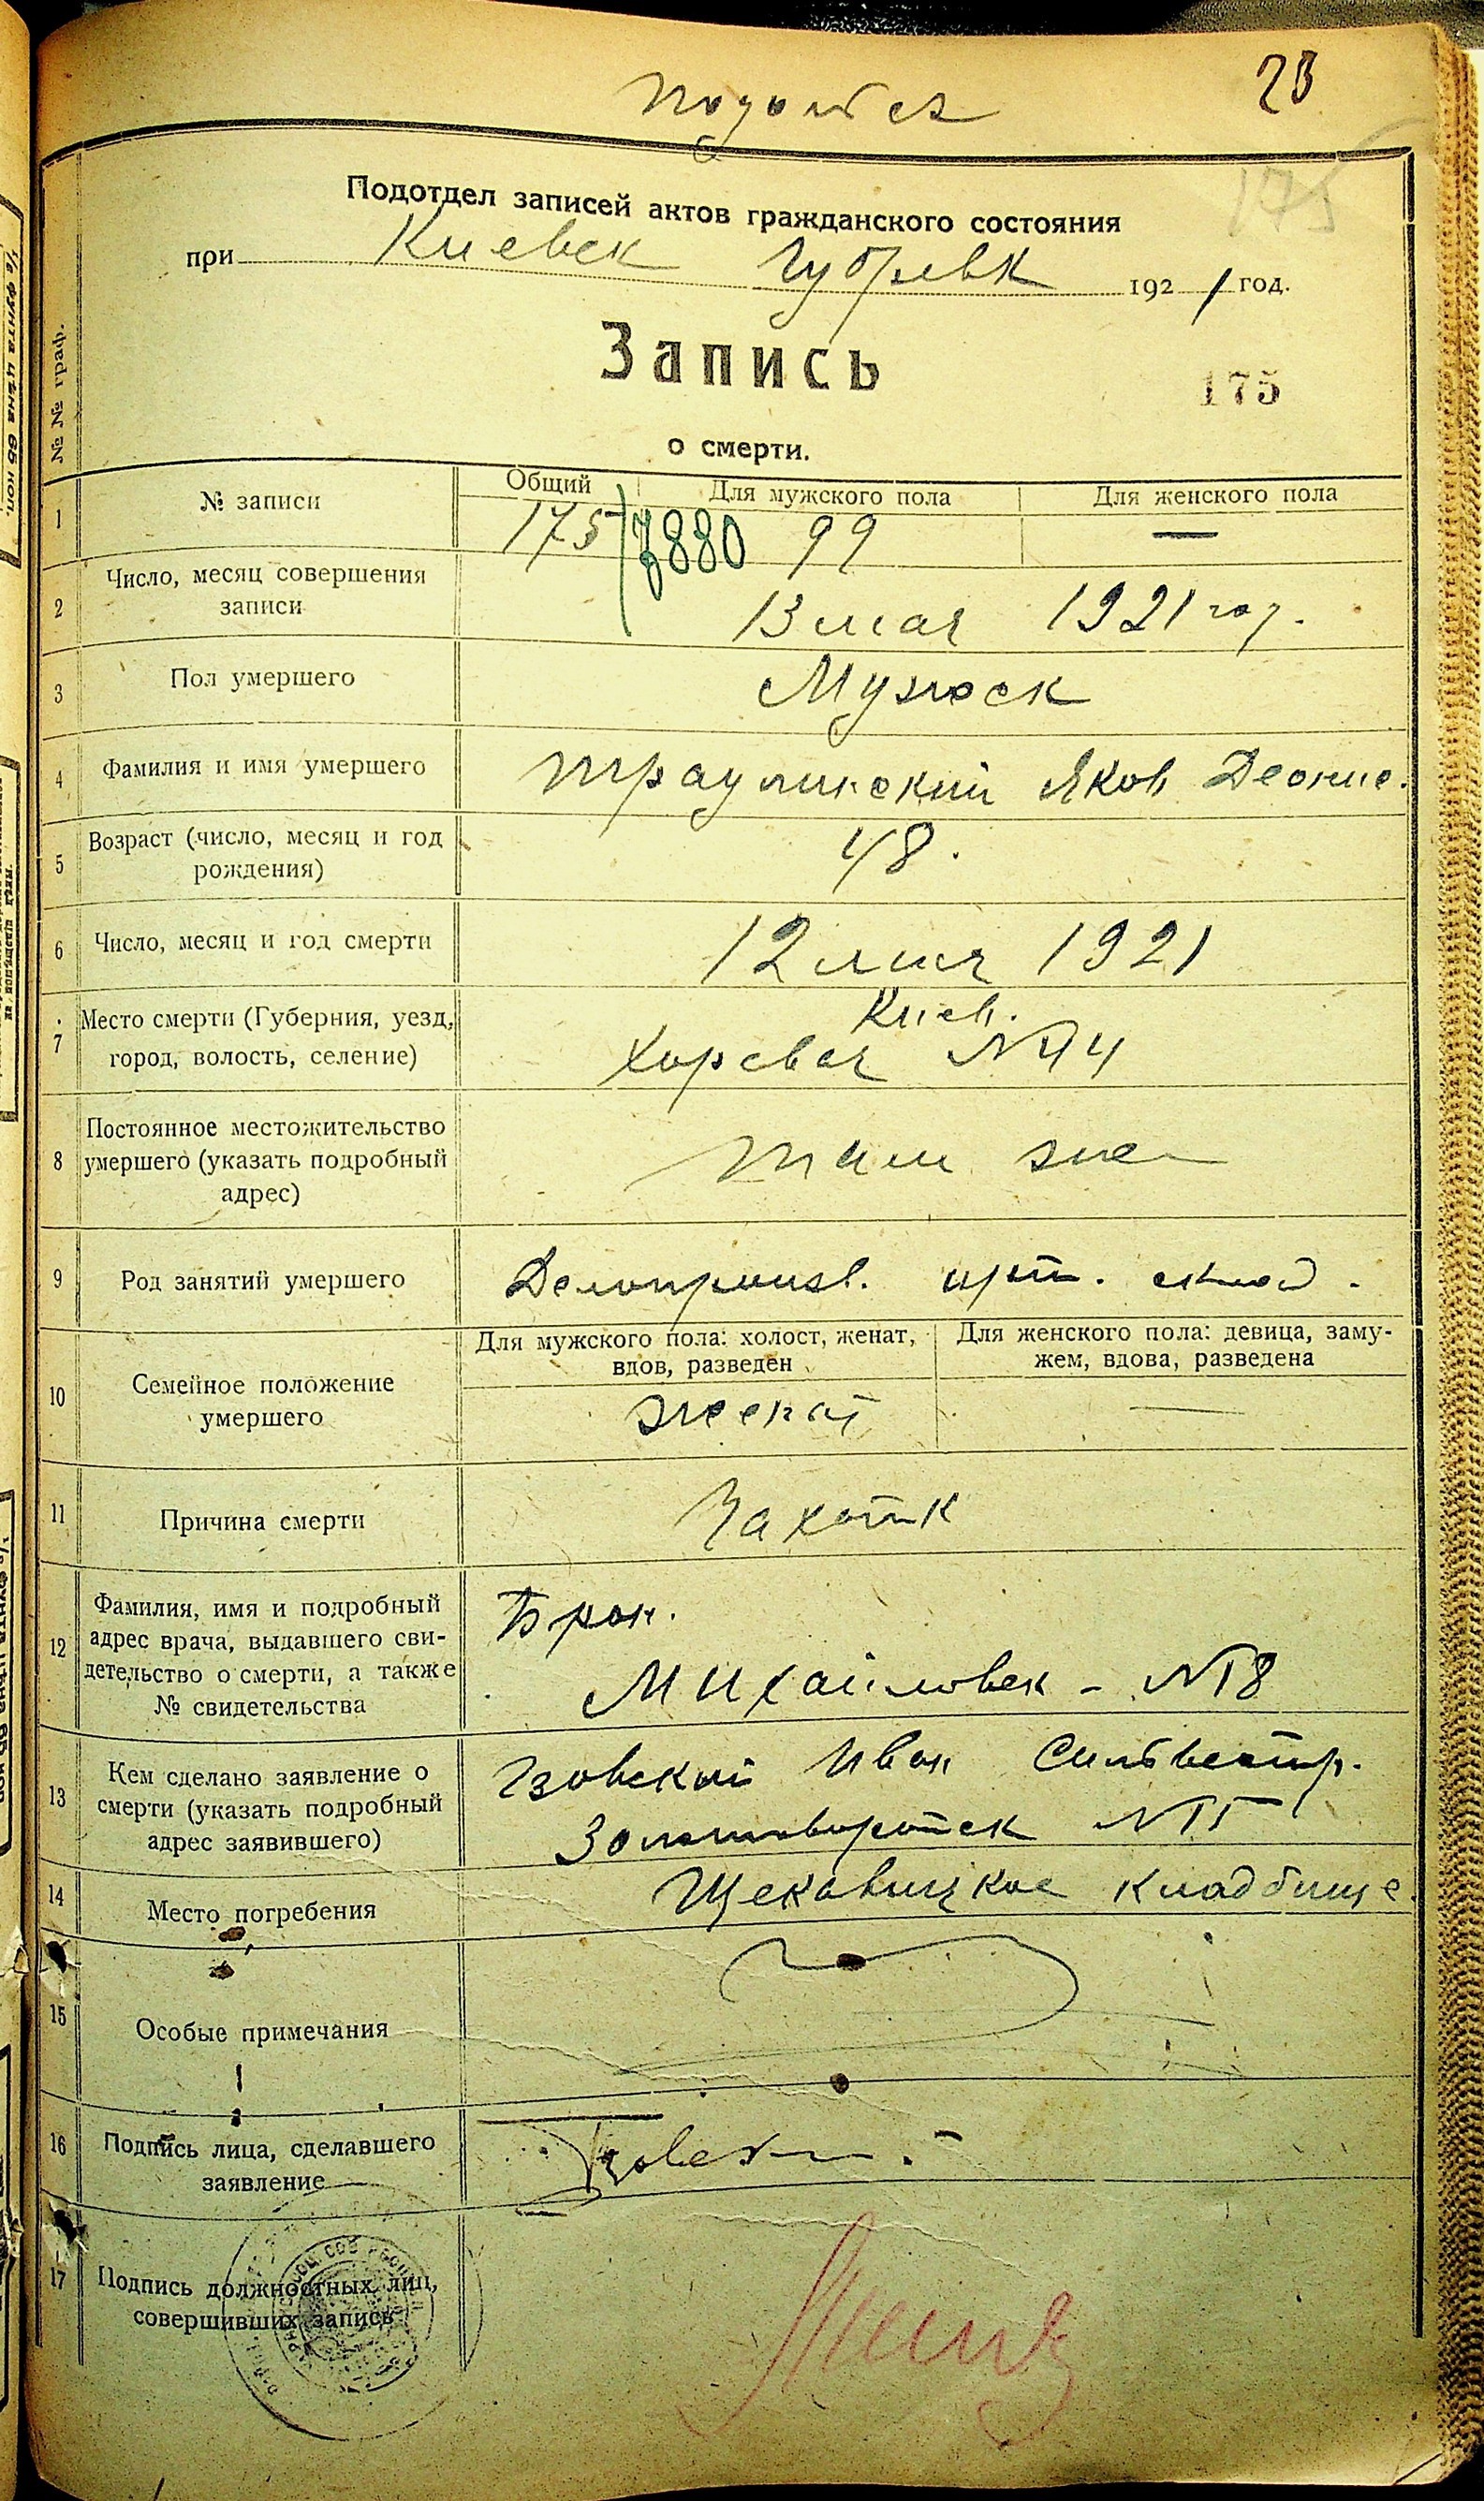 23
175
Подотдел записей актов гражданского состояния
при Киевск Губревк 1921 год.
Запись
175
о смерти.
№ № граф.
Общий Для мужского пола Для женского пола
1 № записи 175 7880 99 —
2 Число, месяц совершения
записи
13 мая 1921 год.
3 Пол умершего Мужеск
4 Фамилия и имя умершего Яков
5 Возраст (число, месяц и год
рождения)
48.
6 Число, месяц и год смерти 12 мая 1921
7 Место смерти (Губерния, уезд,
город, волость, селение)
Киев.
Хоревая № 44
8 Постоянное местожительство
умершего (указать подробный
адрес)
там же
9 Род занятий умершего Делопроизв. арт. склад.
10 Семейное положение
умершего
Для мужского пола: холост, женат,
вдов, разведен
Для женского пола: девица, заму-
жем, вдова, разведена
женат —
11 Причина смерти Чахотк
12 Фамилия, имя и подробный
адрес врача, выдавшего сви-
детельство о смерти, а также
№ свидетельства
Брон.
Михайловск - № 18
13 Кем сделано заявление о
смерти (указать подробный
адрес заявившего)
Гзовский Иван Сильвестр.
Золотоворотск №
14 Место погребения Щекавицкое кладбище.
15 Особые примечания
16 Подпись лица, сделавшего
заявление
17 Подпись должностных лиц,
совершивших запись